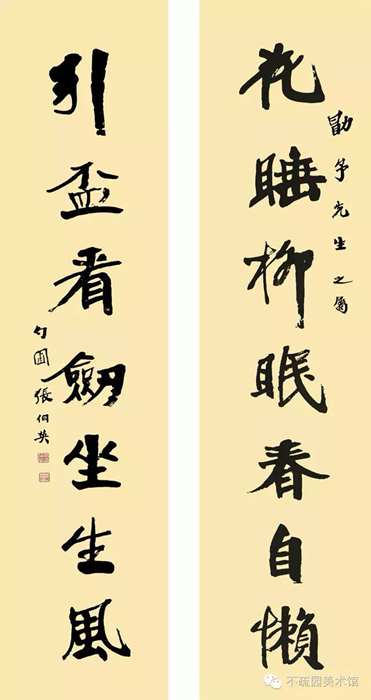 花睡柳眠春自懒
勖予先生之属
引盃看劒坐生風
勺圃張伯英
不疏园美术馆